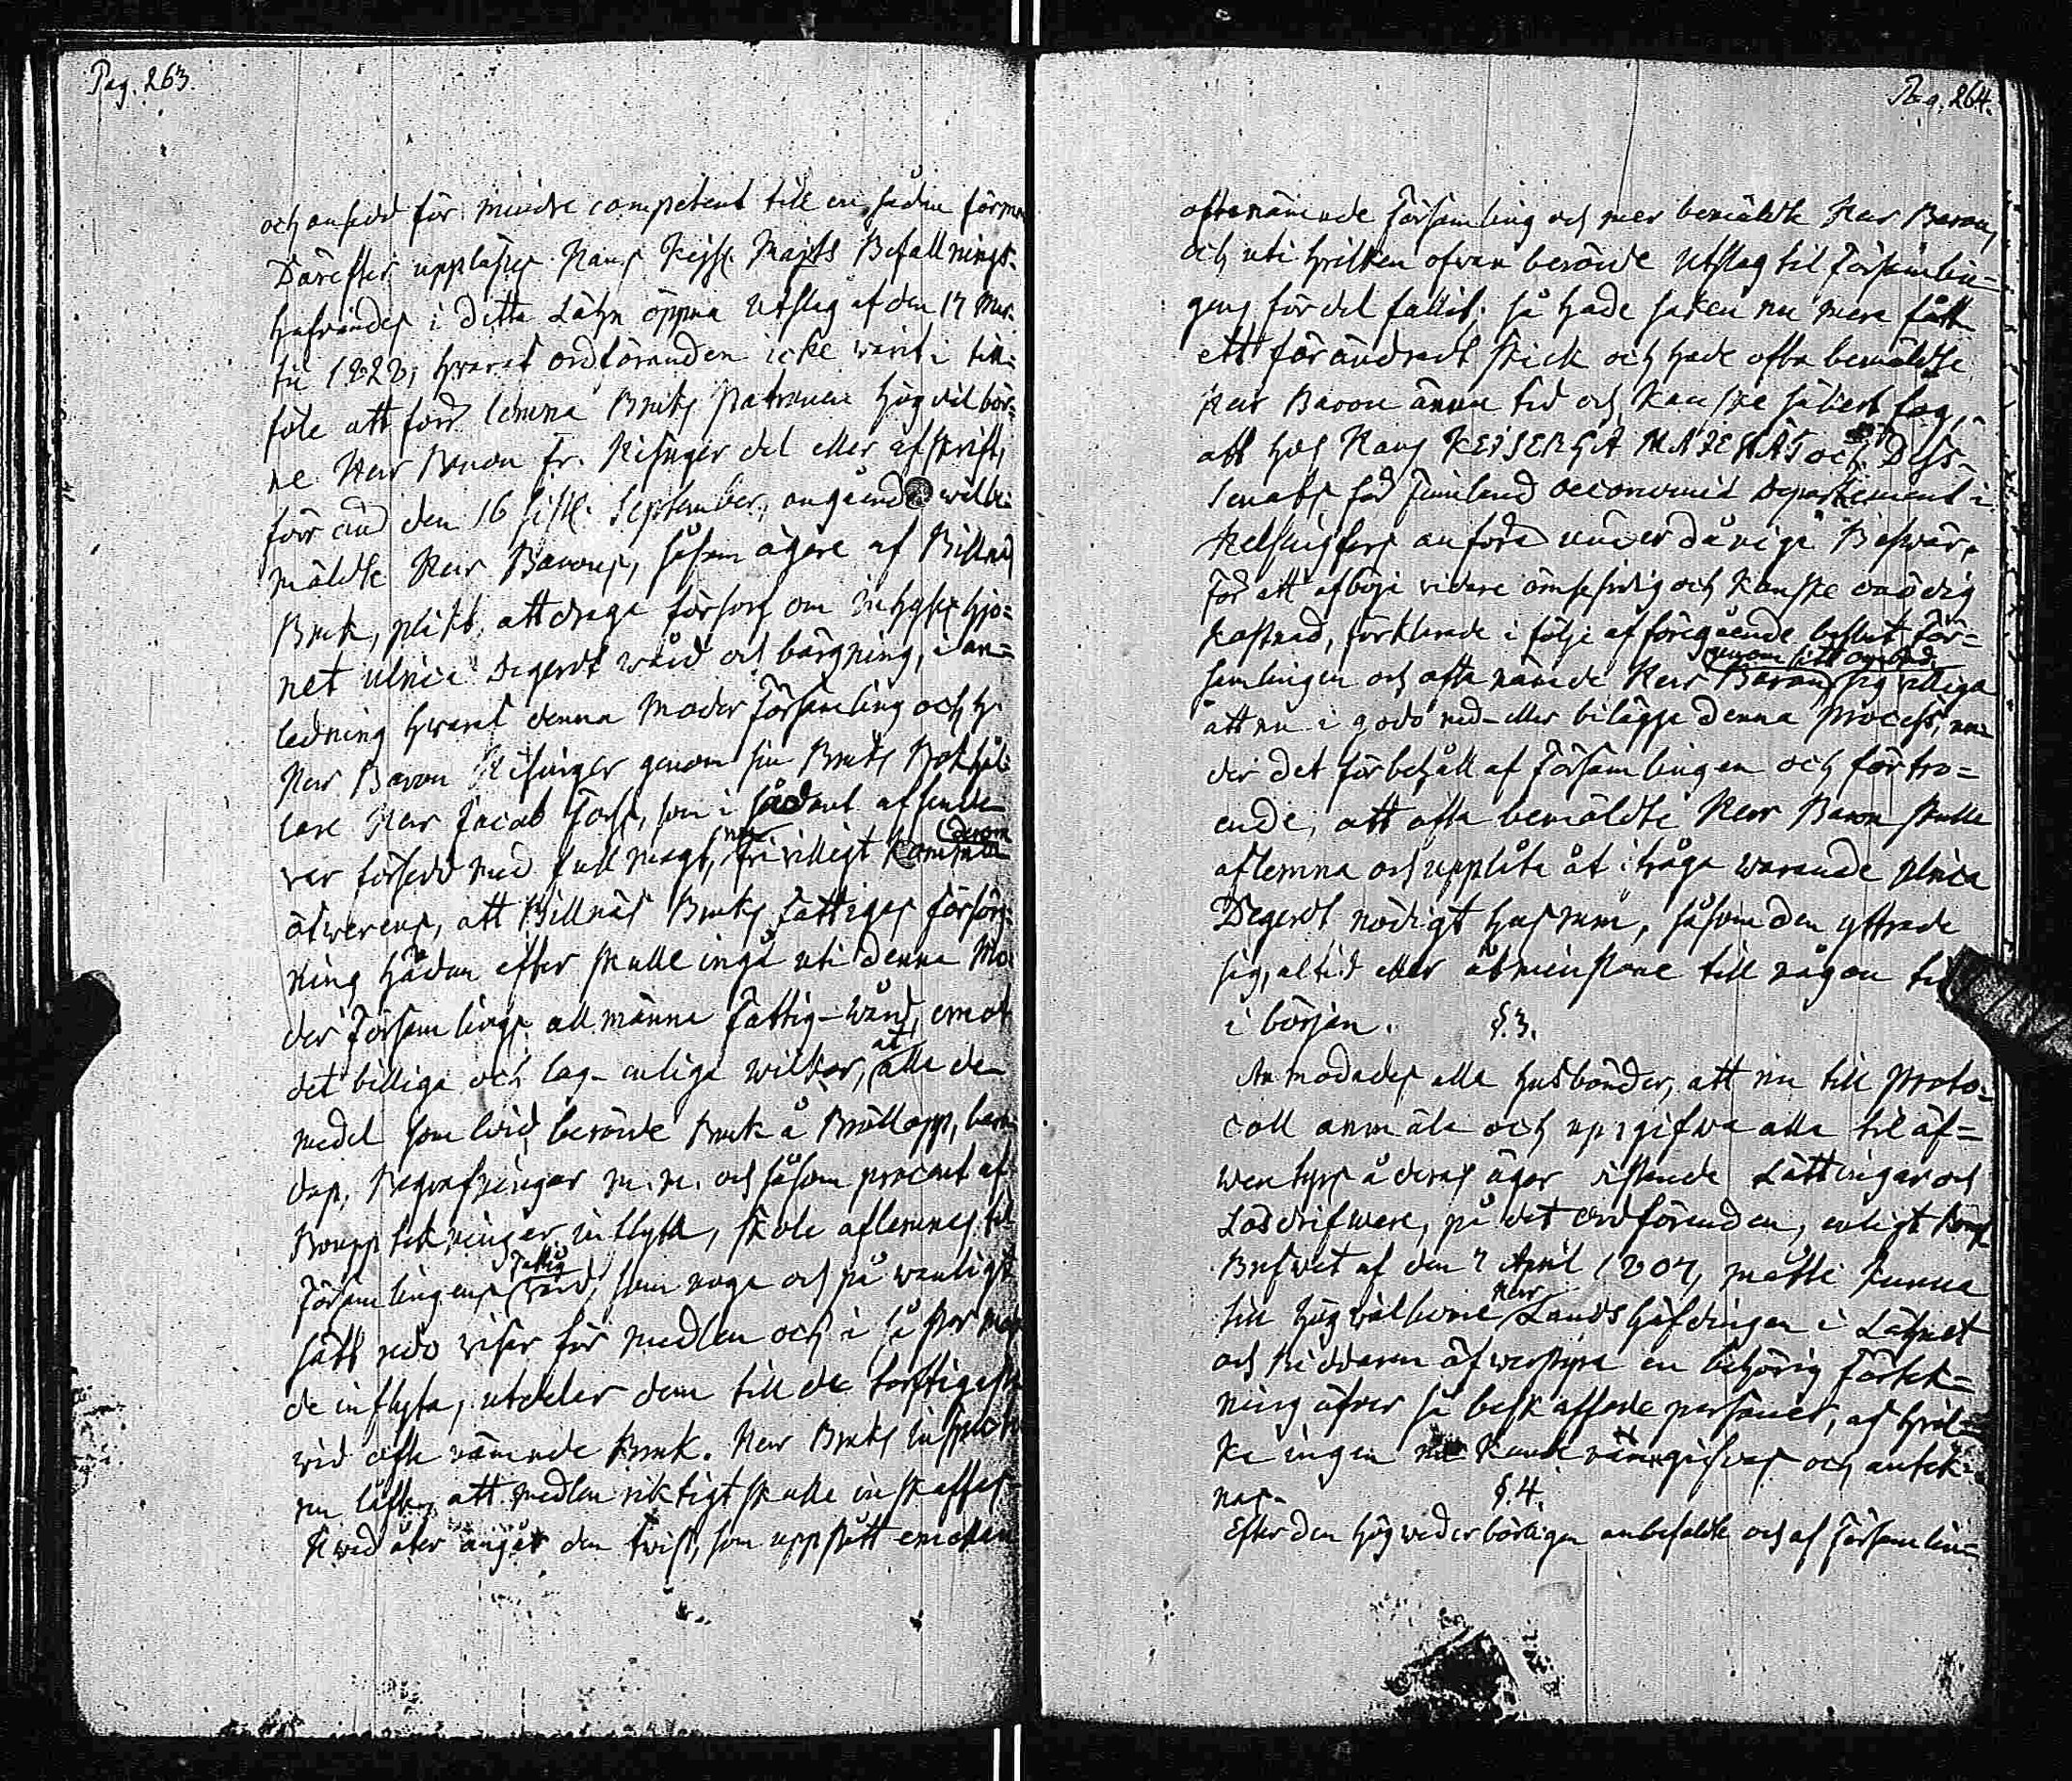 Pag. 263.
och ansedd för mindre competent till en sådan förmon
Därefter upplästes Hans Kejsl. Majts Befallnings-
hafvandes i detta Lähn öppna Utslag af den 17 Mar-
tii 1828, hvaraf ordföranden icke warit i till-
fäle att förr lemna Bruks Patronen högvälbor-
ne Herr Baron Fr. Hisinger del eller afskrift,
förr än den 16 sistl. September, angående wälbe-
mäldte Herr Barons, såsom ägare af Billnäs
Bruk, plikt, att draga försorg om Inhyses hjo-
net Ulrica Degerdt wård och bärgning, i an-
ledning hwaraf denna Moder Församling och H.
Herr Baron Hisinger genom sin Bruks Bokhål-
lare Herr Jacob Forss, som i sådant afseende
var försedd med fullmagt, nu frivilligt kommo derom
öfwerens, att Billnäs Bruks Fattiges försörj-
ning hädan efter skulle ingå uti denna Mo-
der Församlings allmänna Fattig-Wård, emot
det billiga och lag-enliga wilkor, at alla de
medel som vid berörde Bruk å Bröllopp, barn-
dop, Begrafningar m.m. och såsom procent af
Boupptekningar inflyta, skola aflemnas til
Församlingens Fattig vård, som noga och på wanligt
sätt redo visar för medlen och i så stor mon
de inflyta, utdelar dem till de torftigaste
vid ofta nämnde Bruk. Herr Bruks Inspectoren
nu låfte, att medlen riktigt skulle inskaffas.
Hwad åter angår den twist, som uppstått emellan
Pag. 264.
oftanämnde Församling och mer bemäldte Herr Baron,
och uti hvilken ofvan berörde Utslag til Församlin-
gens fördel fallit; så hade saken nu mera fått
ett förändradt skick och hade ofta bemäldte
Herr Baron ännu tid och kanske säkert fog,
att hos Hans KEJSERLIGA MAJESTÄT och Dess
Senats för Finland oeconomie Departement i
Helsingfors anföra underdåniga Beswär.
För att afböja vidare ömsesidig och kanske onödig
kostnad, förklarade i följe af föregående beslut För-
samlingen och ofta nämnde Herr Baron genom sitt ombud, sig villiga
att nu i godo ned- eller bilägga denna process, un-
der det förbehåll af Församlingen och förtro-
ende, att ofta bemäldte Herr Baron skulle
aflemna och upplåta åt ifråga warande Ulrica
Degerdt nödigt husrum, såsom den yttrade
sig, altid eller åtminstone till någon tid
i början. §.3.
Anmodades alla husbönder, att nu till Proto-
coll anmäla och uppgifwa alla til äf-
wentyrs å deras ägor vistande Lättingar och
Lösdrifware, på det ordföranden, enligt Kongl.
Brefvet af den 7 April 1807, måtte kunna
till högvälborne Herr Landshöfdingen i Lähnet
och Riddaren öfwerstyra en behörig förtek-
ning öfver så beskaffade personer, af hvil-
ka ingen nu kunde nämngifvas och antek-
nas. §.4.
Efter den högvederbörligen anbefaldte och af Församlin-